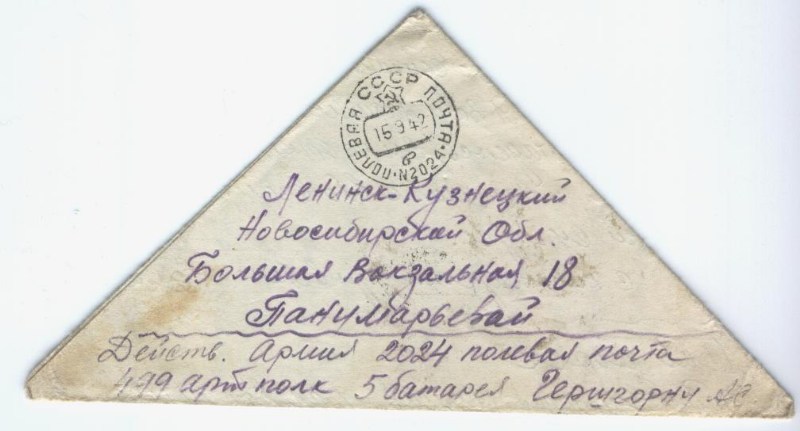 ПОЛЕВАЯ СССР ПОЧТА
15 9 42
в
N2024
Ленинск-Кузнецкий
Новосибирской Обл.
Большая Вокзальная 18
Панумарьевой
Действ. Армия 2024 полевая почта
499 арт полк 5 батарея Гершгорну АС